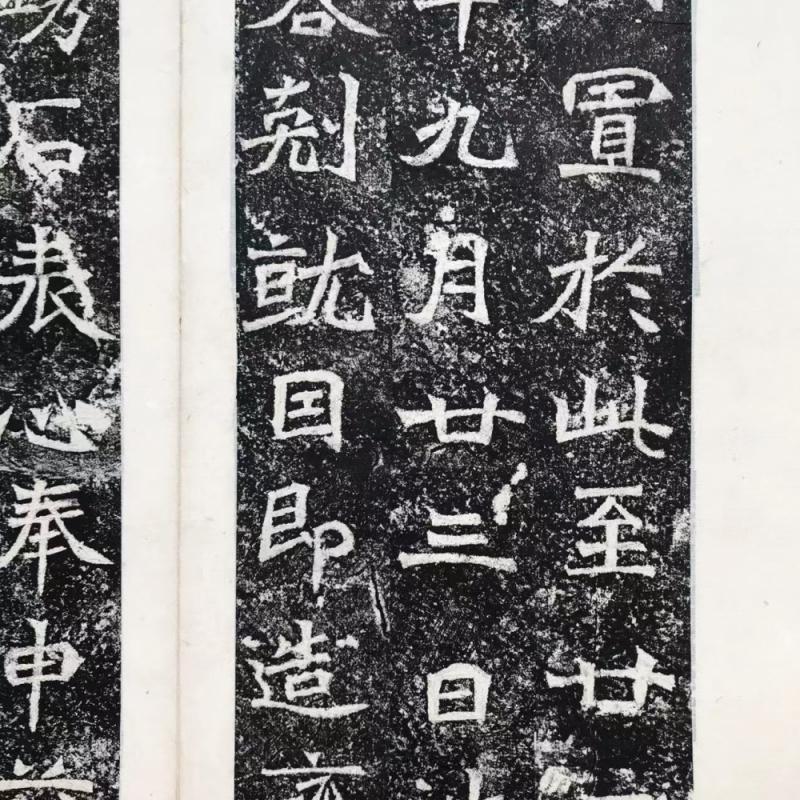 置於此至廿
年九月廿三日
容剋就因即造
石表心奉申